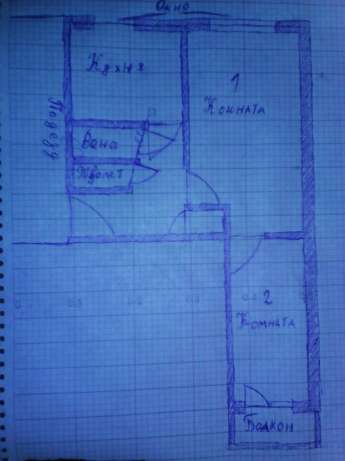 Окно
Кухня
1
Комната
Подъезд
Вана
Туалет
2
Комната
Балкон